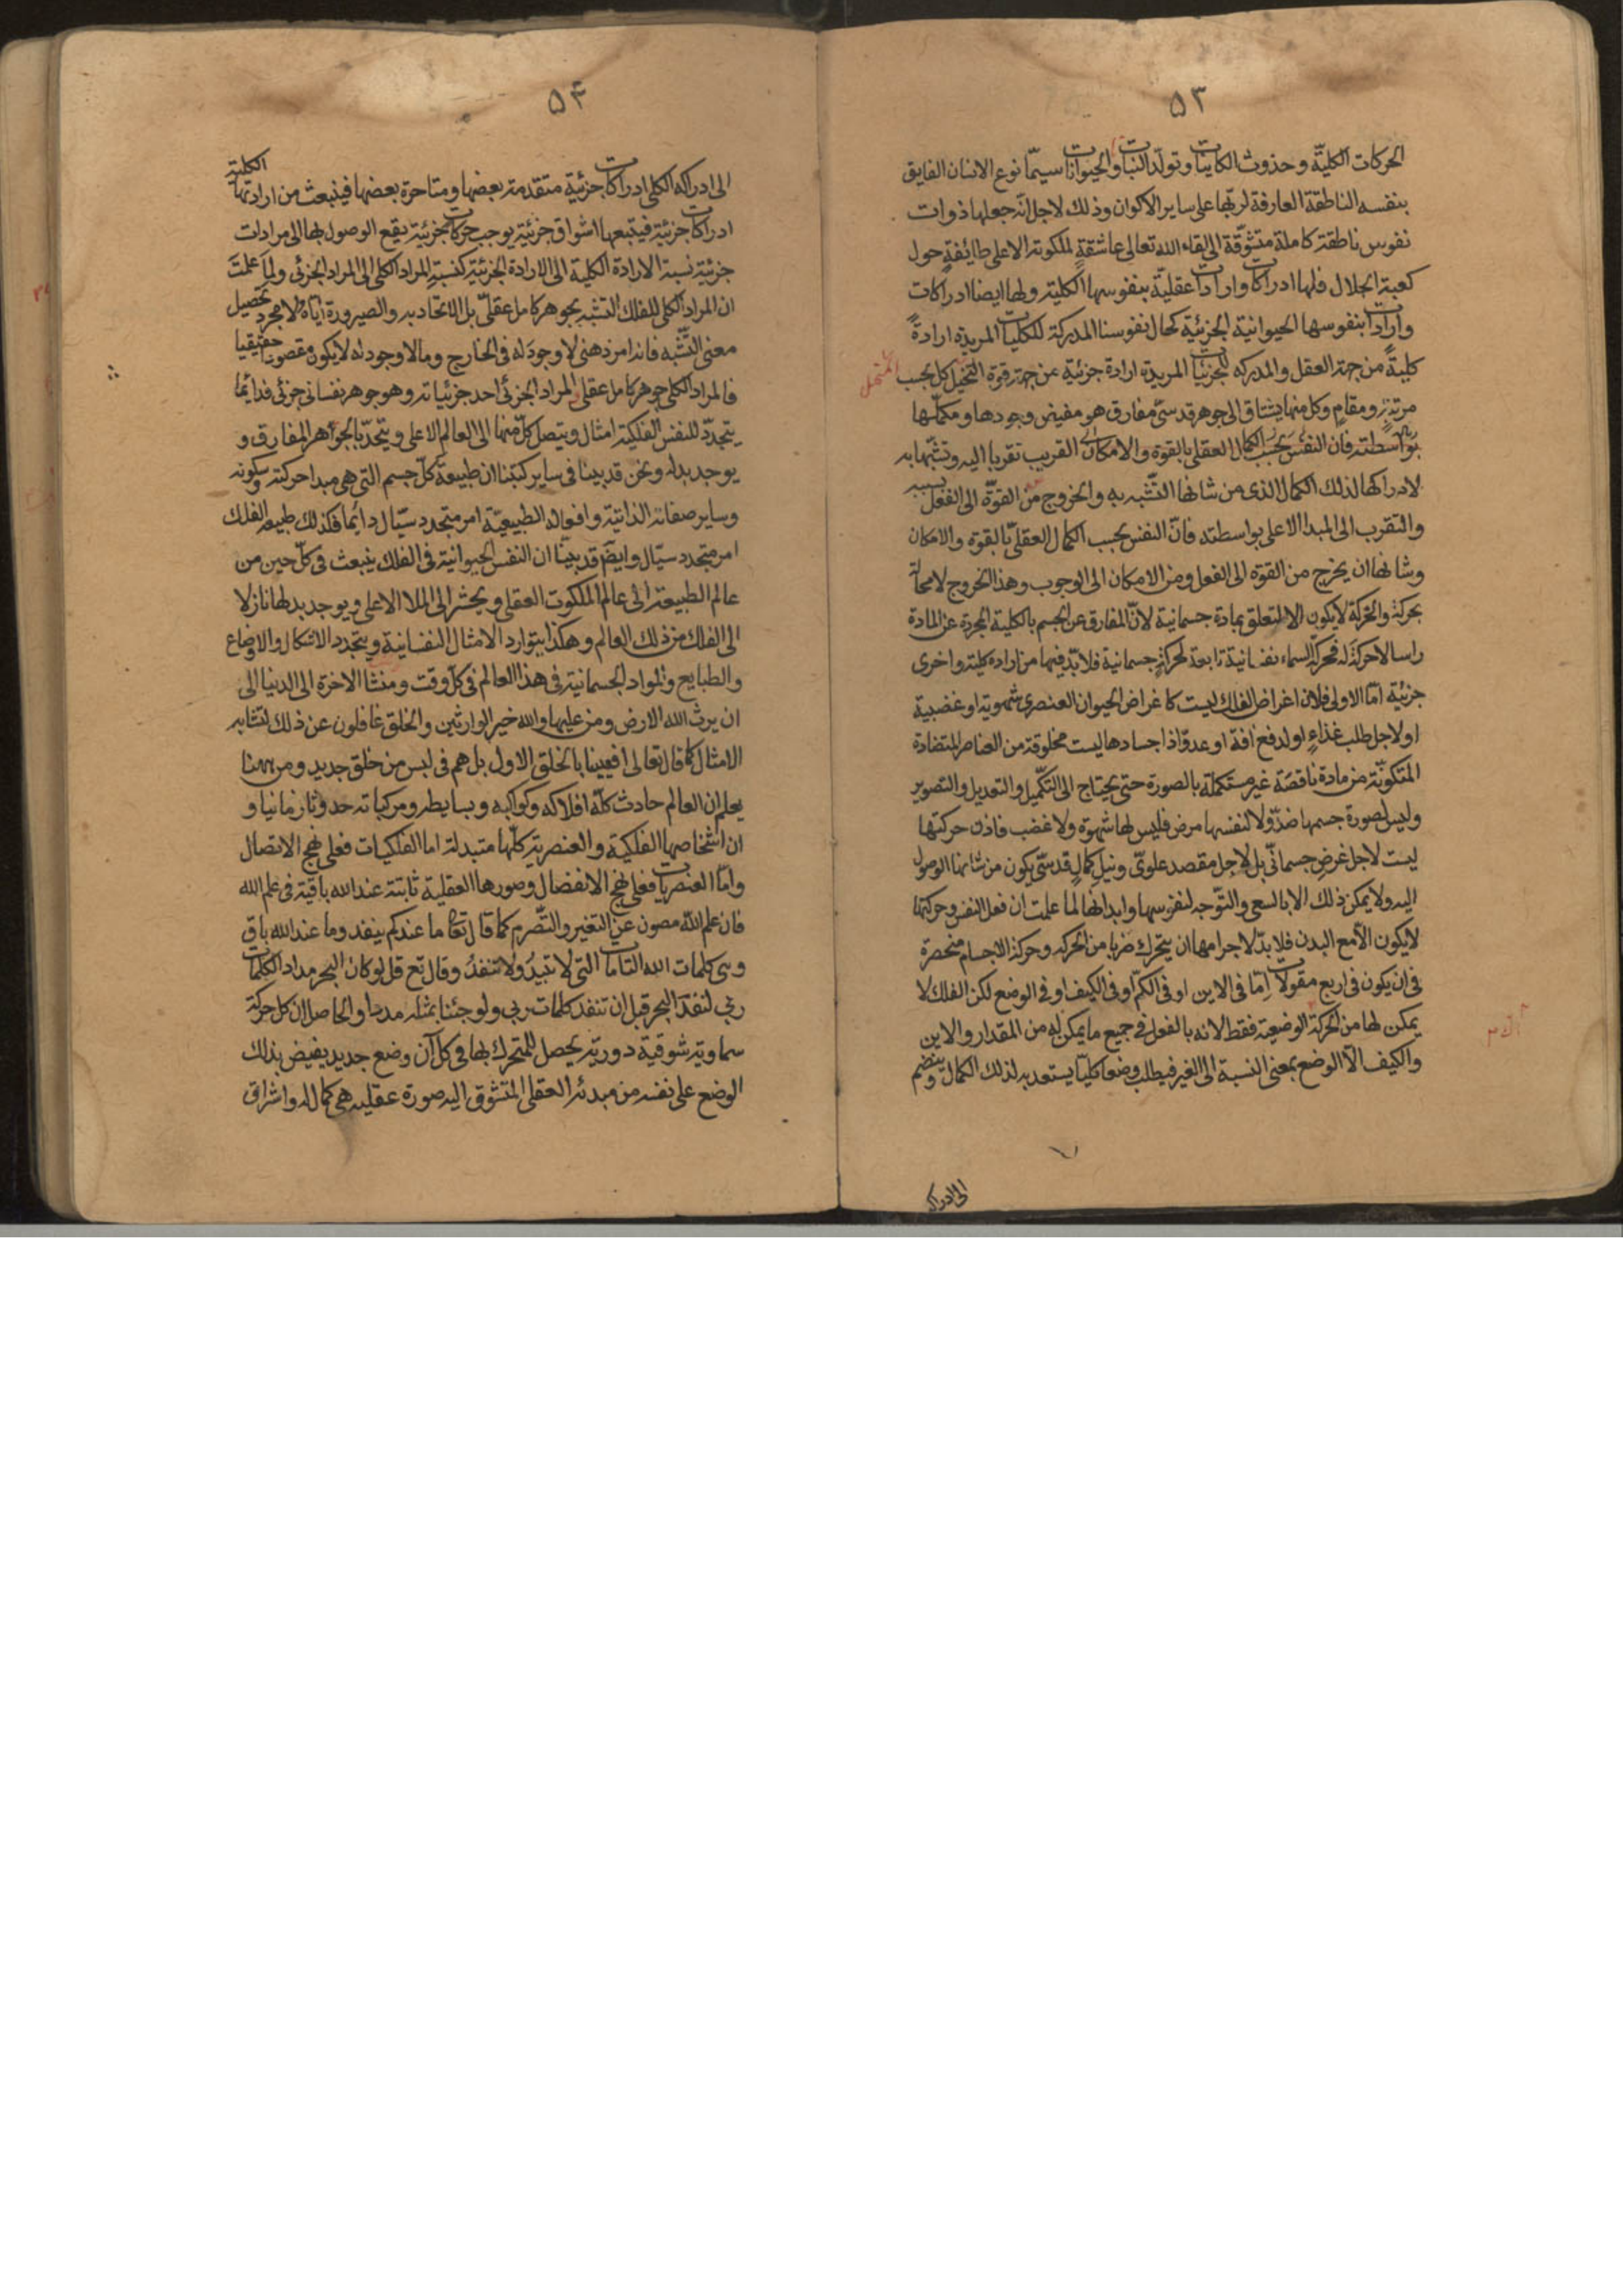 ۵۳
الحركات الكليّة وحدوث الكاينات وتولّد النبات والحيوانات سيمّا نوع الانسان الفايق
بنفسه الناطقة العارفة لربّها على ساير الاكوان وذلك لاجل انّه جعلها ذوات
نفوس ناطقة كاملة متشوّقة الى لقاء الله تعالى عاشقةٍ لملكوته الاعلى طائفةٍ حول
كعبة الجلال فلها ادراكات وارادات عقليّة بنفوسها الكلية ولها ايضا ادراكات
وارادات بنفوسها الحيوانية الجزئية كحال نفوسنا المدركة للكليات المريدة ارادةً
كليّةً من جهة العقل والمدركه للجزئيات المريدة ارادة جزئية من جهة قوة التخيل كل بحسب
مرتبةٍ ومقامٍ وكل منها يشتاق الى جوهر قدسىّ مفارق هو مفيض وجودها ومكمّلها
بواسطته فان النفس بحسب الكمال العقلى بالقوة والامكان القريب تقربا اليه وتشبّها به
لادراكها لذلك الكمال الذى من شانها التشّبه به والخروج من القوّة الى الفعل بسببه
والتقرب الى المبدا الاعلى بواسطته فانّ النفس بحسب الكمال العقلىّ بالقوة والامكان
وشانها ان يخرج من القوة الى الفعل ومن الامكان الى الوجوب وهذا الخروج لا محالة
بحركة والحركة لا يكون الا لمتعلق بمادة جسمانية لانّ المفارق عن الجسم بالكلية المجردة عن المادة
راسا لا حركة له فحركة السماء نفسانية تابعة لحركةٍ جسمانية فلا بدّ فيها من ارادة كلية واخرى
جزئية امّا الاولى فلان اغراض الفلك ليست كاغراض الحيوان العنصرى شهوية او غضبية
او لاجل طلب غذاءٍ او لدفع افة او عدوّ اذ اجسادها ليست مخلوقة من العناصر المتضادة
المتكونّة من مادة ناقصة غير مستكملة بالصورة حتى يحتاج الى التكميل والتعديل والتصوير
وليس لصورة جسمها ضدّ ولا لنفسها مرض فليس لها شهوة ولا غضب فاذن حركتها
ليست لاجل غرضٍ جسمانىّ بل لاجل مقصد علوىّ ونيل كمالٍ قدسىّ يكون من شانها الوصول
اليه ولا يمكن ذلك الا بالسعى والتوجّه لنفوسها وابدانها لما علمت ان فعل النفس وحركتها
لا يكون الاّ مع البدن فلا بدّ لاجرامها ان يتحرك ضربا من الحركه وحركة الاجسام منحصرة
فى ان يكون فى اربع مقولات اِمّا فى الاين او فى الكمّ او فى الكيف او فى الوضع لكن الفلك لا
يمكن لها من الحركة الوضعية فقط لانه بالفعل فى جميع ما يمكن له من المقدار والاين
والكيف الاّ الوضع بمعنى النسبة الى الغير فيطلب وضعا كليّا يستعد به لذلك الكمال وينضم
الى ادراكه
۵۴
الى ادراكه الكلى ادراكات جزئية متقدمة بعضها ومتاخرة بعضها فينبعث من ارادتها الكلية
ادراكات جزئية فيتبعها اشواق جزئية يوجب حركات جزئية يقع الوصول بها الى مرادات
جزئية نسبة الارادة الكلية الى الارادة الجزئية كنسبةِ المراد الكلى الى المراد الجزئى ولما علمتَ
ان المراد الكلى للفلك التشبه بجوهر كامل عقلىّ بل الاتحاد به والصيرورة ايّاه لا مجرد تحصيل
معنى التشّبه فانه امر ذهنى لا وجود له فى الخارج وما لا وجود له لا يكون مقصودا حقيقيا
فالمراد الكلى جوهر كامل عقلى والمراد الجزئى احد جزئياته وهو جوهر نفسانى جزئى فدائما
يتجدّد للنفس الفلكية امثال ويتصل كلّ منها الى العالم الاعلى ويتحدّ بالجواهر المفارق و
يوجد بدله ونحن قد بينا فى ساير كتبنا ان طبيعة كلّ جسم التى هى مبدا حركته وسكونه
وساير صفاته الذاتية وافعاله الطبيعيّة امر متجدد سيّال دائما فكذلك طبيعه الفلك
امر متجدد سيّال وايضً قد بينّا ان النفس الحيوانية فى الفلك ينبعث فى كلّ حين من
عالم الطبيعة الى عالم الملكوت العقلى ويحشر الى الملا الاعلى ويوجد بدلها نازلا
الى الفلك من ذلك العالم وهكذا يتوارد الامثال النفسانية ويتجدد الاشكال والاوضاع
والطبايع والمواد الجسمانية فى هذا العالم فى كلّ وقت ومنشا الاخرة الى الدنيا الى
ان يرث الله الارض ومن عليها والله خير الوارثين والخلق غافلون عن ذلك لتشابه
الامثال كما قال تعالى افعيينا بالخلق الاول بل هم فى لبس من خلق جديد ومن ههنا
يعلم ان العالم حادث كلّه افلاكه وكواكبه وبسايطه ومركباته حدوثا زمانيا و
ان اشخاصها الفلكية والعنصرية كلّها متبدلة اما الفلكيات فعلى نهج الاتصال
وامّا العنصريات فعلى نهج الانفصال وصورها العقلية ثابتة عند الله باقية فى علم الله
فان علم الله مصون عن التغير والتصّرم كما قال تعا ما عندكم ينفد وما عند الله باق
وهى كلمات الله التامات التى لا تبيدُ ولا تنفدُ وقال تع قل لو كان البحر مدادا لكلمات
ربي لنفد البحر قبل ان تنفد كلمات ربي ولو جئنا بمثله مددا والحاصل ان كل حركة
سماوية شوقية دورية يحصل للمتحرك بها فى كل آن وضع جديد يفيض بذلك
الوضع على نفسه من مبدئه العقلى المتشوّق اليه صورة عقليه هى كمال له واشراق